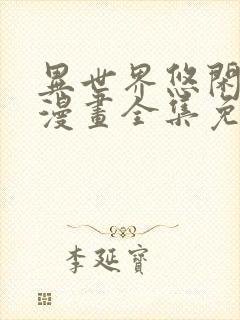 異世界悠閑
漫畫全集免
李延寶